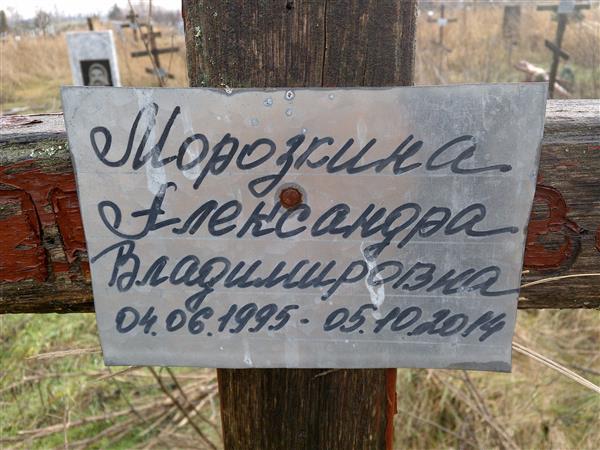 Морозкина
Александра
Владимировна
04.06.1995 - 05.10.2014